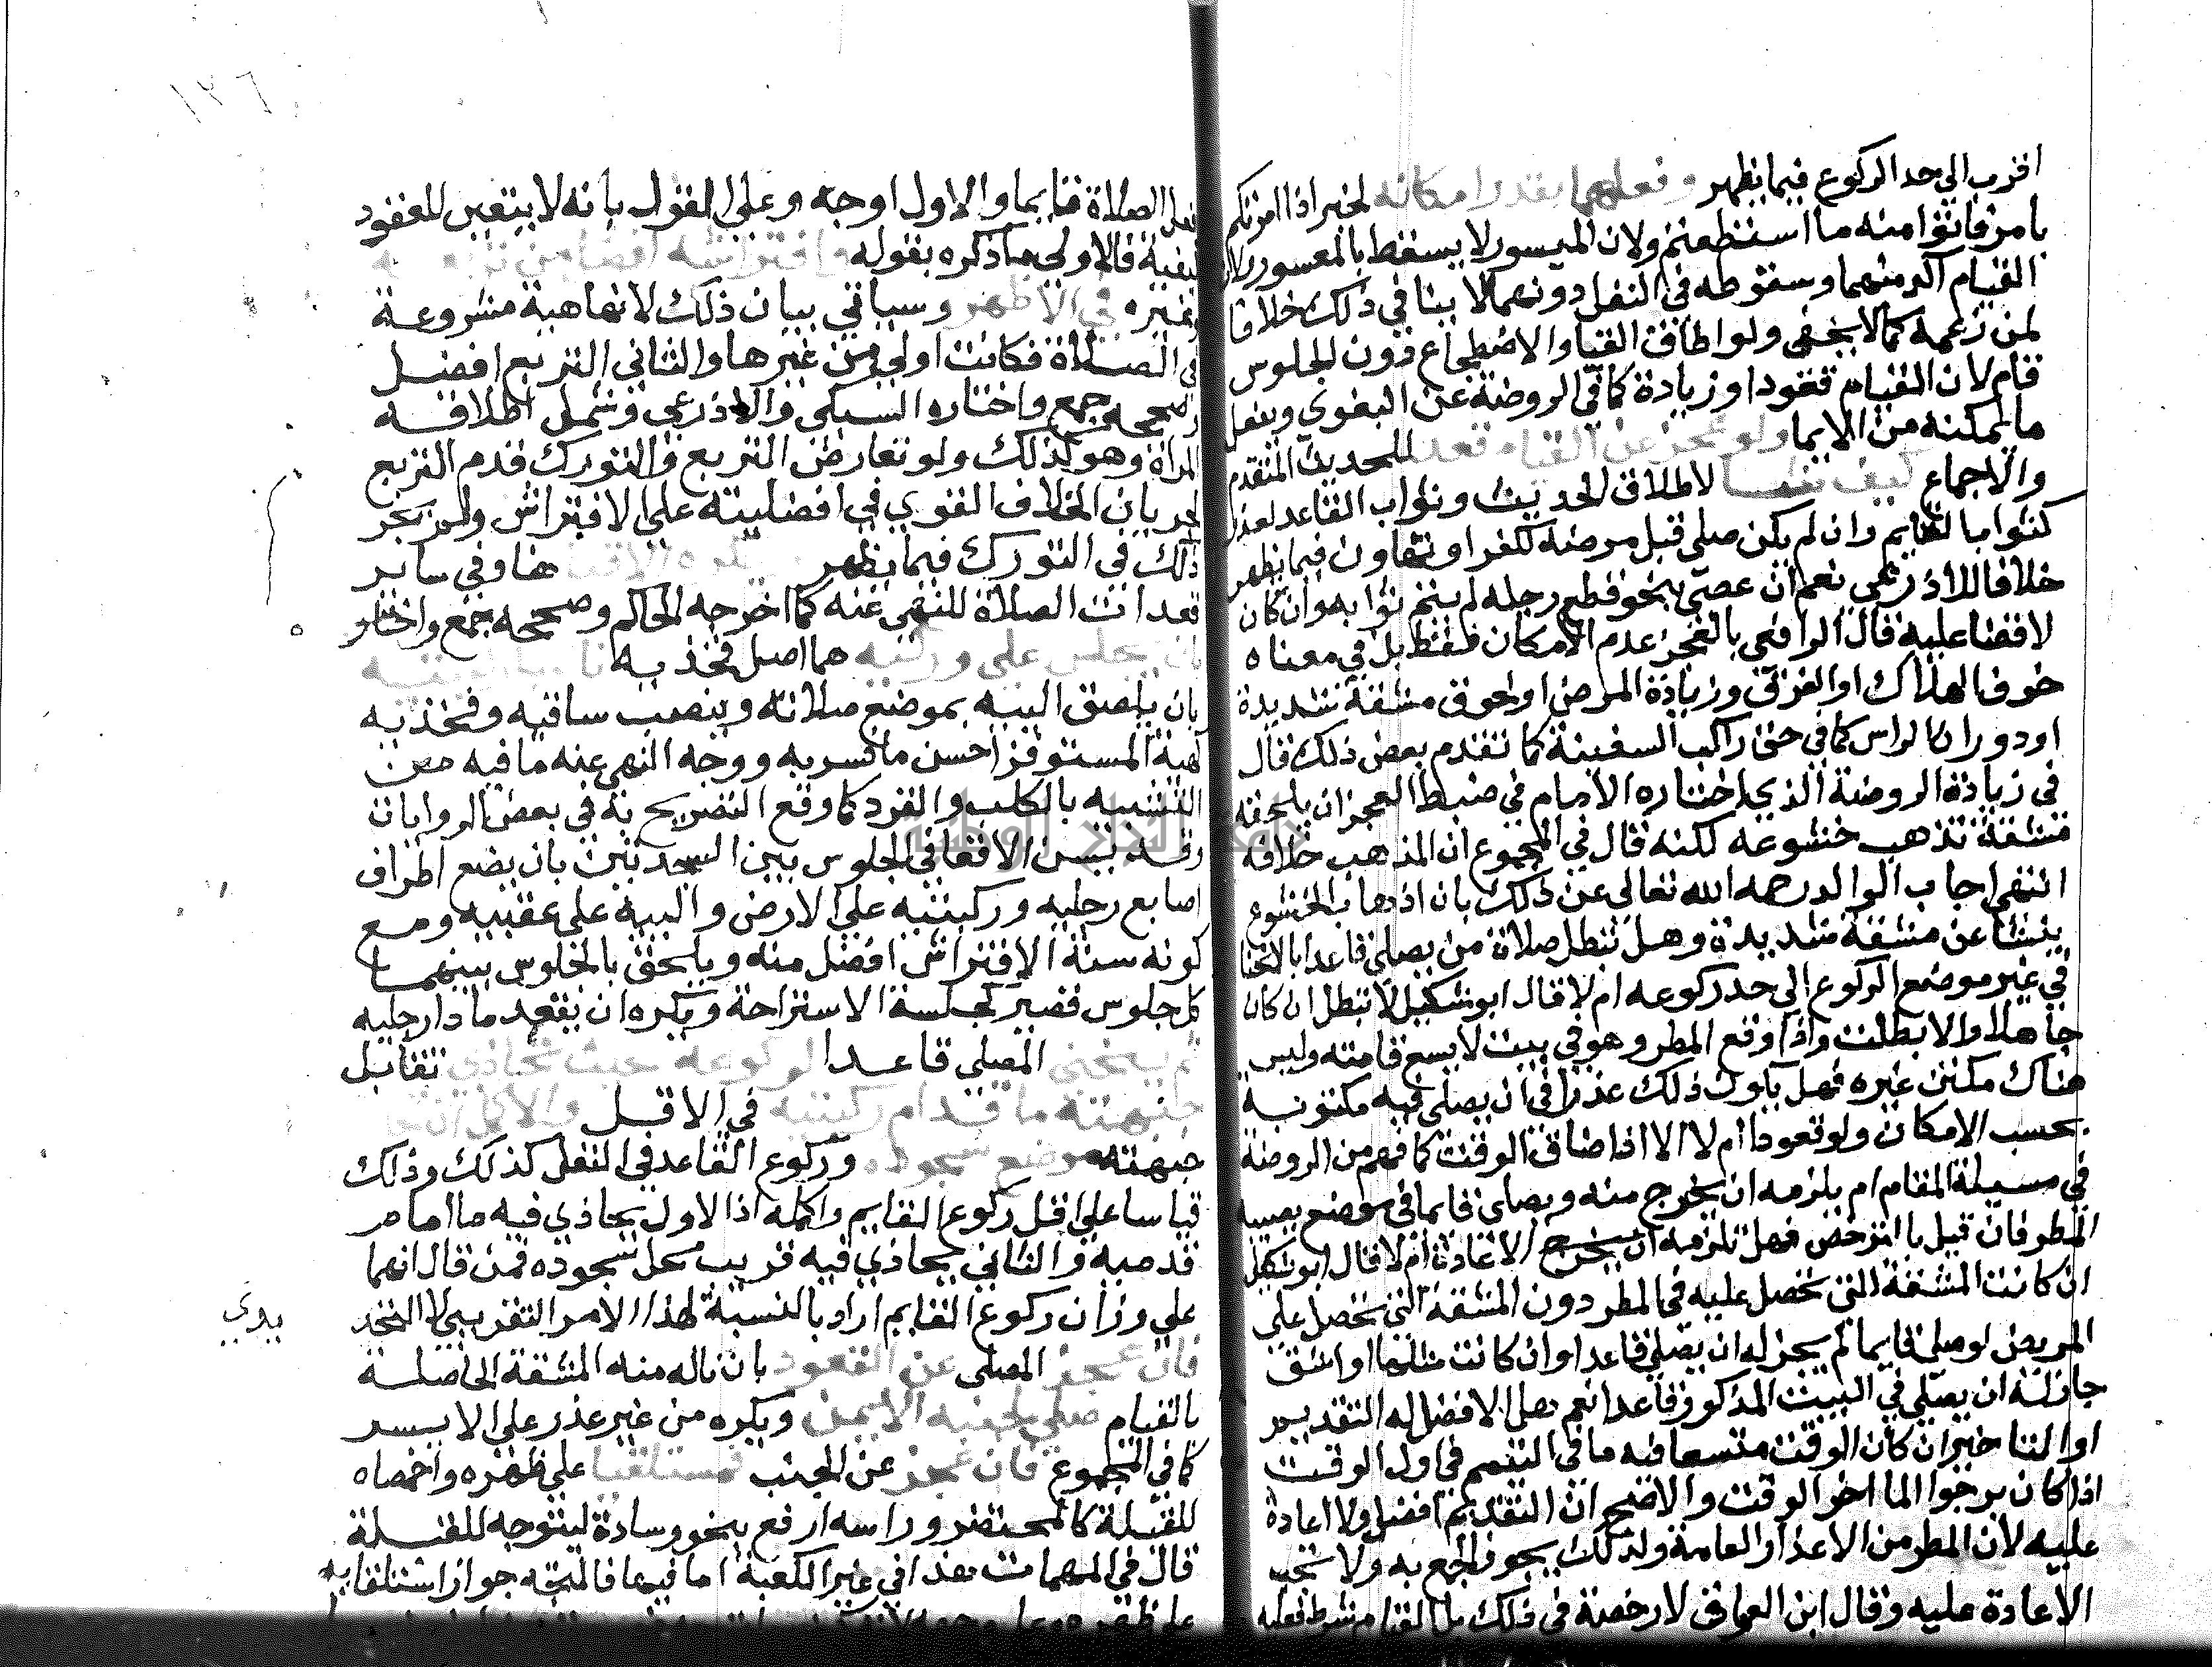 اقرب الي حد الركوع فيما يظهر وفعلهما بقدر امكانه لخبر اذا امرتكم
بامر فاتوا منه ما استطعتم ولان الميسور لا يسقط بالمعسور ولان
القيام آكد منهما وسقوطه في النفل دونهما لا ينافي ذلك خلافا
لمن زعمه كما لا يخفى ولو اطاق القيام والاضطجاع دون الجلوس
قام لان القيام قعود وزيادة كما في الروضة عن البغوي ويفعل
ما يمكنه من الايما ولو عجز عن القيام قعد للحديث المتقدم
والاجماع كيف شا لاطلاق الحديث وثواب القاعد لعذر
كثواب القايم وان لم يكن صلى قبل مرضه لكفر او تهاون فيما يظهر
خلافا للاذرعي نعم ان عصى بنحو قطع رجله لم يتم ثوابه وان كان
لا قضا عليه قال الرافعي بالعجز عدم الامكان فقط بل في معناه
خوف الهلاك او الغرق وزيادة المرض او لحوق مشقة شديدة
او دوران الراس كما في حق راكب السفينة كما تقدم بعض ذلك قال
في زيادة الروضة الذي اختاره الامام في ضبط العجز ان يلحقه
مشقة تذهب خشوعه لكنه قال في المجموع ان المذهب خلافه
انتهى اجاب الوالد رحمه الله تعالى عن ذلك بان اذهاب الخشوع
ينشا عن مشقة شديدة وهل تبطل صلاة من يصلي قاعدا بالانحنا
في غير موضع الركوع الى حد ركوعه ام لا قال ابو شكيل لا تبطل ان كان
جاهلا والا بطلت واذا وقع المطر وهو في بيت لا يسع قامته وليس
هناك مكتن غيره فهل يكون ذلك عذرا في ان يصلي فيه مكتوبة
بحسب الامكان ولو قعودا ام لا الا اذا ضاق الوقت كما فهم من الروضة
في مسيلة المقام ام يلزمه ان يخرج منه ويصلي قايما في موضع يصيبه
المطر فان قيل بالترخص فهل تلزمه ان يخرج الاعادة ام لا قال ابو شكيل
ان كانت المشقة التي تحصل عليه في المطر دون المشقة التي تحصل على
المريض لو صلى قايما لم يجز له ان يصلي قاعدا وان كانت مثلها او اشق
جاز له ان يصلي في البيت المذكور قاعدا نعم هل الافضل له التقديم
او التاخير ان كان الوقت متسعا فيه ما في التيمم في اول الوقت
اذا كان يرجوا الما اخر الوقت والاصح ان التقديم افضل ولا اعادة
عليه لان المطر من الاعذار العامة ولذلك يجوز الجمع به ولا تجب
الاعادة عليه وقال ابن العماق لا رخصة في ذلك بل القيام شرط فعليه
١٣٦
فعل الصلاة قايما والاول اوجه وعلى القول بانه لا يتعين للقعود
كيفية فالاولى ما ذكره بقوله وافتراشه افضل من تربعه
وغيره في الاظهر وسياتي بيان ذلك لانها هيئة مشروعة
في الصلاة فكانت اولى من غيرها والثاني التربع افضل
وصححه جمع واختاره السبكي والاذرعي وشمل اطلاقه
المراة وهو كذلك ولو تعارض التربع والتورك قدم التربع
لجريان الخلاف القوي في افضليته على الافتراش ولم يجر
ذلك في التورك فيما يظهر ويكره الاقعا هنا وفي ساير
قعدات الصلاة للنهي عنه كما اخرجه الحاكم وصححه جمع واختار
بان يجلس على وركيه هما اصل فخذيه ناصبا ركبتيه
بان يلصق الييه بموضع صلاته وينصب ساقيه وفخذيه
كهيئة المستوفز احسن ما فسر به ووجه النهي عنه ما فيه من
التشبيه بالكلب والقرد كما وقع التصريح به في بعض الروايات
وقد يسن الاقعا في الجلوس بين السجدتين بان يضع اطراف
اصابع رجليه وركبتيه على الارض والييه على عقبيه ومع
كونه سنة الافتراش افضل منه ويلحق بالجلوس بينهما
كل جلوس قصير كجلسة الاستراحة ويكره ان يقعد مادا رجليه
ثم ينحني المصلي قاعدا لركوعه حيث تحاذي تقابل
جبهته ما قدام ركبتيه في الاقل والاكمل ان تحاذي
جبهته موضع سجوده وركوع القاعد في النفل كذلك وذلك
قياسا على اقل ركوع القايم واكمله اذ الاول يحاذي فيه ما امام
قدميه والثاني يحاذي فيه قريب محل سجوده فمن قال انهما
على وزان ركوع القايم اراد بالنسبة لهذا الامر التقريبي لا التحد
يدي
فان عجز المصلي عن القعود بان ناله منه المشقة الحاصلة
بالقيام صلى لجنبه الايمن ويكره من غير عذر على الايسر
كما في المجموع فان عجز عن الجنب فمستلقيا على ظهره واخمصاه
للقبلة كالمحتضر وراسه ارفع بنحو وسادة ليتوجه للقبلة
قال في المهمات هذا في غير الكعبة اما فيها فالمتجه جواز استلقايه